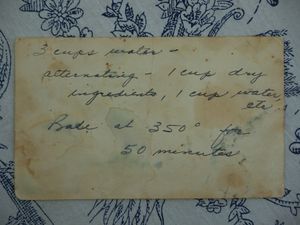 3 cups water -
alternating - 1 cup dry
ingredients, 1 cup water,
etc.
Bake at 350° for
50 minutes